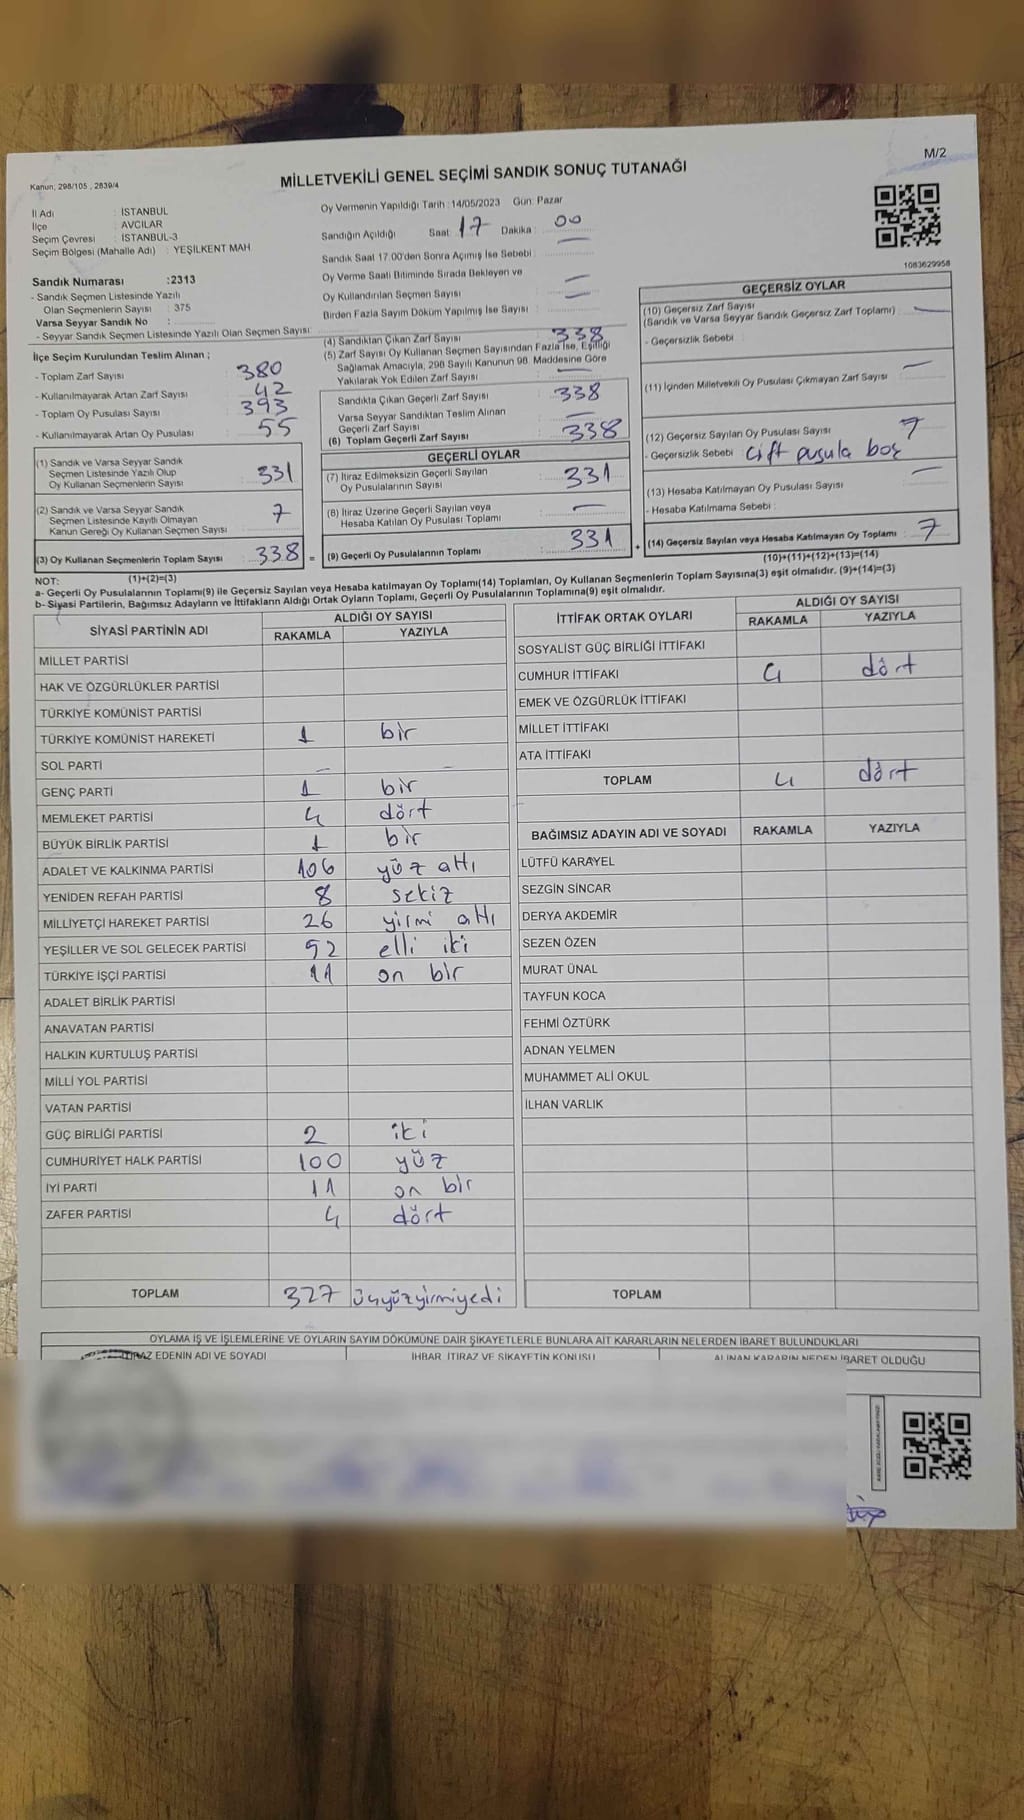 M/2
Kanun, 298/105 , 2839/4
MİLLETVEKİLİ GENEL SEÇİMİ SANDIK SONUÇ TUTANAĞI
İl Adı : İSTANBUL
İlçe : AVCILAR
Seçim Çevresi : İSTANBUL-3
Seçim Bölgesi (Mahalle Adı) : YEŞİLKENT MAH
Oy Vermenin Yapıldığı Tarih :14/05/2023 Gün: Pazar
Sandığın Açıldığı Saat : 17 Dakika : 00
Sandık Saat 17.00'den Sonra Açımış İse Sebebi :
Oy Verme Saati Bitiminde Sırada Bekleyen ve
Oy Kullandırılan Seçmen Sayısı : —
Birden Fazla Sayım Döküm Yapılmış İse Sayısı : —
1083629958
Sandık Numarası :2313
- Sandık Seçmen Listesinde Yazılı
Olan Seçmenlerin Sayısı : 375
Varsa Seyyar Sandık No :
- Seyyar Sandık Seçmen Listesinde Yazılı Olan Seçmen Sayısı:
İlçe Seçim Kurulundan Teslim Alınan ;
- Toplam Zarf Sayısı : 380
- Kullanılmayarak Artan Zarf Sayısı : 42
- Toplam Oy Pusulası Sayısı : 393
- Kullanılmayarak Artan Oy Pusulası : 55
(1) Sandık ve Varsa Seyyar Sandık
Seçmen Listesinde Yazılı Olup
Oy Kullanan Seçmenlerin Sayısı : 331
(2) Sandık ve Varsa Seyyar Sandık
Seçmen Listesinde Kayıtlı Olmayan
Kanun Gereği Oy Kullanan Seçmen Sayısı : 7
(3) Oy Kullanan Seçmenlerin Toplam Sayısı : 338 =
(1)+(2)=(3)
(4) Sandıktan Çıkan Zarf Sayısı : 338
(5) Zarf Sayısı Oy Kullanan Seçmen Sayısından Fazla İse, Eşitliği
Sağlamak Amacıyla, 298 Sayılı Kanunun 98. Maddesine Göre
Yakılarak Yok Edilen Zarf Sayısı : —
Sandıkta Çıkan Geçerli Zarf Sayısı : 338
Varsa Seyyar Sandıktan Teslim Alınan
Geçerli Zarf Sayısı : —
(6) Toplam Geçerli Zarf Sayısı : 338
GEÇERLİ OYLAR
(7) İtiraz Edilmeksizin Geçerli Sayılan
Oy Pusulalarının Sayısı : 331
(8) İtiraz Üzerine Geçerli Sayılan veya
Hesaba Katılan Oy Pusulası Toplamı : —
(9) Geçerli Oy Pusulalarının Toplamı : 331 +
GEÇERSİZ OYLAR
(10) Geçersiz Zarf Sayısı
(Sandık ve Varsa Seyyar Sandık Geçersiz Zarf Toplamı) : —
- Geçersizlik Sebebi :
(11) İçinden Milletvekili Oy Pusulası Çıkmayan Zarf Sayısı : —
(12) Geçersiz Sayılan Oy Pusulası Sayısı : 7
- Geçersizlik Sebebi : Çift pusula boş
(13) Hesaba Katılmayan Oy Pusulası Sayısı : —
- Hesaba Katılmama Sebebi :
(14) Geçersiz Sayılan veya Hesaba Katılmayan Oy Toplamı : 7
(10)+(11)+(12)+(13)=(14)
NOT:
a- Geçerli Oy Pusulalarının Toplamı(9) ile Geçersiz Sayılan veya Hesaba katılmayan Oy Toplamı(14) Toplamları, Oy Kullanan Seçmenlerin Toplam Sayısına(3) eşit olmalıdır. (9)+(14)=(3)
b- Siyasi Partilerin, Bağımsız Adayların ve İttifakların Aldığı Ortak Oyların Toplamı, Geçerli Oy Pusulalarının Toplamına(9) eşit olmalıdır.
SİYASİ PARTİNİN ADI ALDIĞI OY SAYISI
RAKAMLA YAZIYLA
MİLLET PARTİSİ
HAK VE ÖZGÜRLÜKLER PARTİSİ
TÜRKİYE KOMÜNİST PARTİSİ
TÜRKİYE KOMÜNİST HAREKETİ 1 bir
SOL PARTİ — —
GENÇ PARTİ 1 bir
MEMLEKET PARTİSİ 4 dört
BÜYÜK BİRLİK PARTİSİ 1 bir
ADALET VE KALKINMA PARTİSİ 106 yüz altı
YENİDEN REFAH PARTİSİ 8 sekiz
MİLLİYETÇİ HAREKET PARTİSİ 26 yirmi altı
YEŞİLLER VE SOL GELECEK PARTİSİ 52 elli iki
TÜRKİYE İŞÇİ PARTİSİ 11 on bir
ADALET BİRLİK PARTİSİ
ANAVATAN PARTİSİ
HALKIN KURTULUŞ PARTİSİ
MİLLİ YOL PARTİSİ
VATAN PARTİSİ
GÜÇ BİRLİĞİ PARTİSİ 2 iki
CUMHURİYET HALK PARTİSİ 100 yüz
İYİ PARTİ 11 on bir
ZAFER PARTİSİ 4 dört
TOPLAM 327 üçyüzyirmiyedi
İTTİFAK ORTAK OYLARI ALDIĞI OY SAYISI
RAKAMLA YAZIYLA
SOSYALİST GÜÇ BİRLİĞİ İTTİFAKI
CUMHUR İTTİFAKI 4 dört
EMEK VE ÖZGÜRLÜK İTTİFAKI
MİLLET İTTİFAKI
ATA İTTİFAKI
TOPLAM 4 dört
BAĞIMSIZ ADAYIN ADI VE SOYADI RAKAMLA YAZIYLA
LÜTFÜ KARAYEL
SEZGİN SİNCAR
DERYA AKDEMİR
SEZEN ÖZEN
MURAT ÜNAL
TAYFUN KOCA
FEHMİ ÖZTÜRK
ADNAN YELMEN
MUHAMMET ALİ OKUL
İLHAN VARLIK
TOPLAM
OYLAMA İŞ VE İŞLEMLERİNE VE OYLARIN SAYIM DÖKÜMÜNE DAİR ŞİKAYETLERLE BUNLARA AİT KARARLARIN NELERDEN İBARET BULUNDUKLARI
İTİRAZ EDENİN ADI VE SOYADI İHBAR, İTİRAZ VE ŞİKAYETİN KONUSU ALINAN KARARIN NEDEN İBARET OLDUĞU